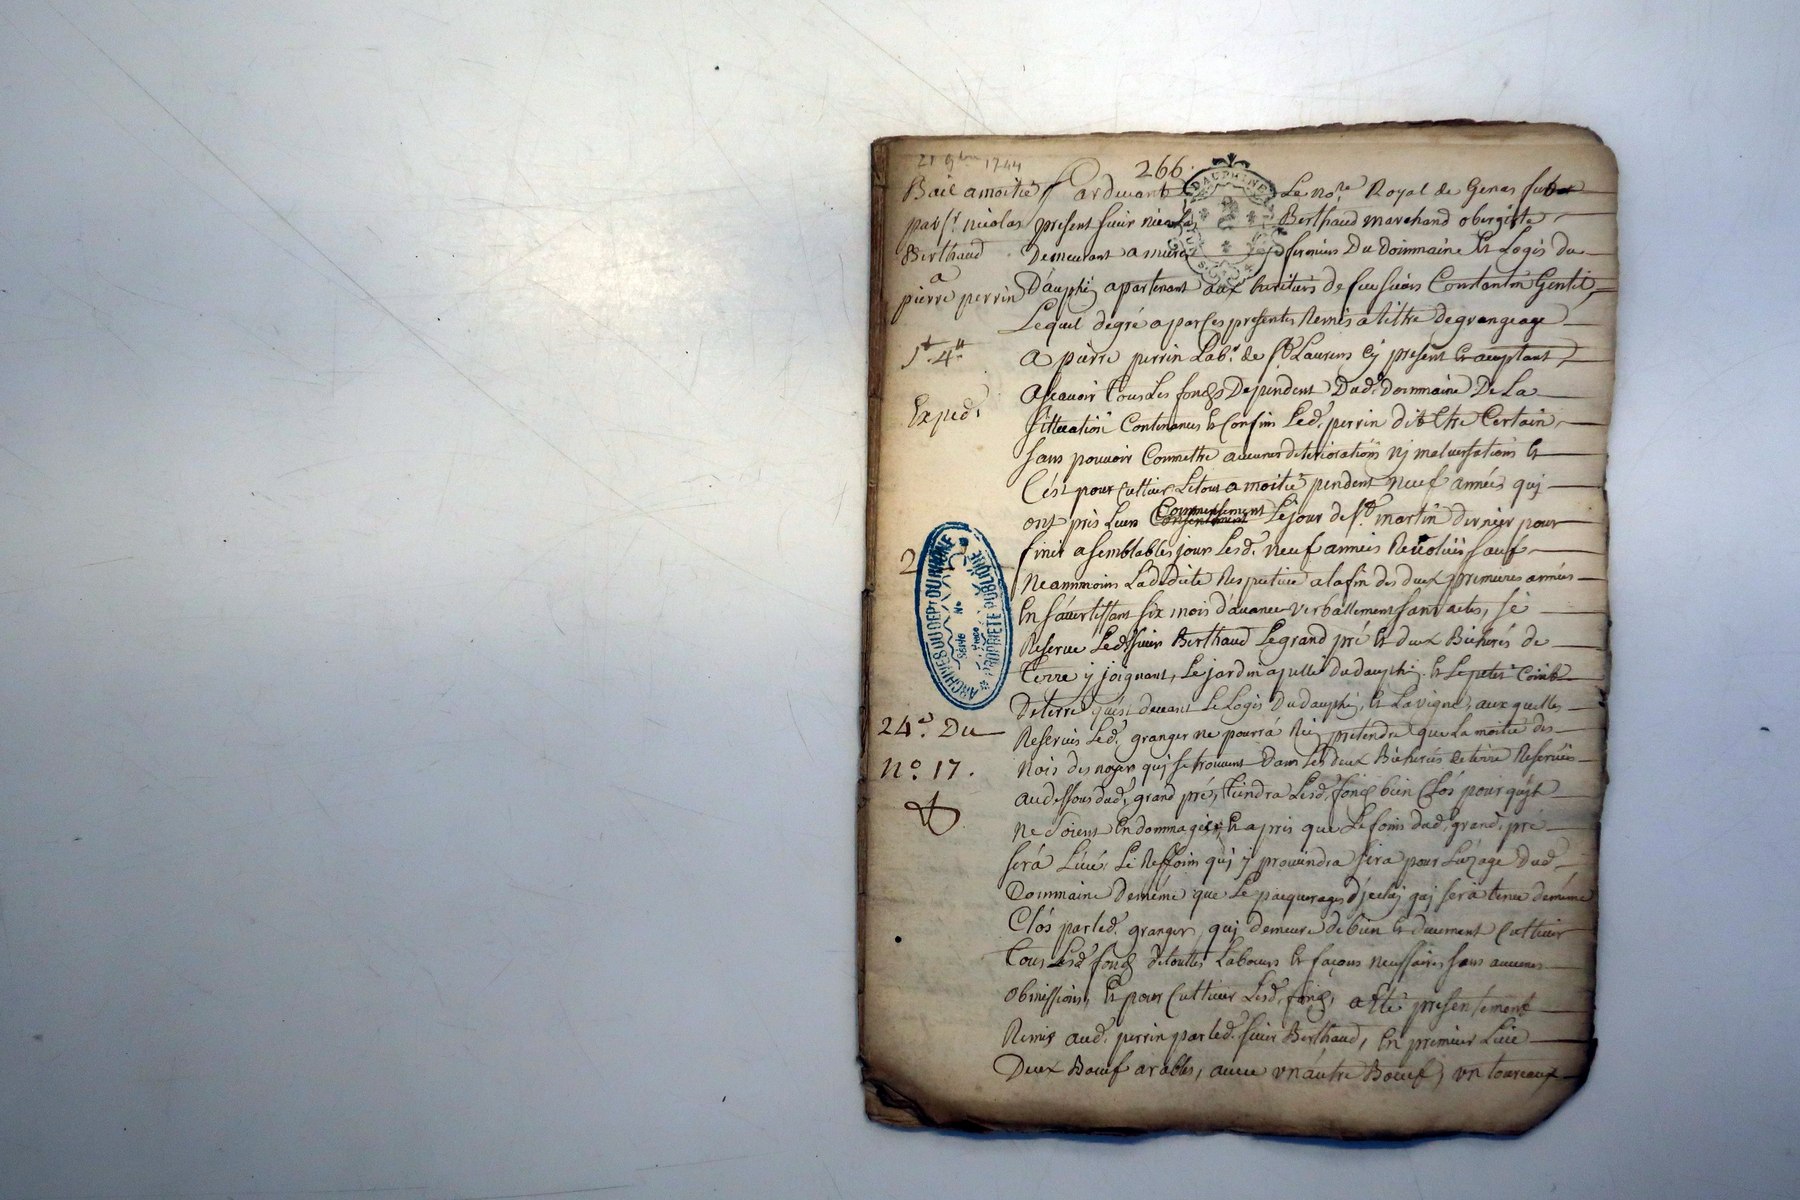 21 9bre 1744
266.
Bail a moitié
par Sr. nicolas
Berthaud
a
pierre perrin
Exped.
24e. Du
No. 17.
DAUPHINE
ARCHIVES DU DEPT DU RHONE
PROPRIETE PUBLIQUE
Pardevant Le nore. Royal de Genas
present sieur nicolas Berthaud marchand obergiste
Demeurant a fermier Du Dommaine Et Logis du
Dauphi apartenant aux heritiers de feu sieur Constantin Gentil,
Lequel de gré a par ces presentes Remis a tiltre de grangeage
A pierre perrin Labr. de St Laurens Cy present Et aceptant,
ascavoir tous Les fonds Dependent Dud. Dommaine De La
sittuation Contenances Et Confins Led. perrin dit Etre Certain,
sans pouvoir Commettre aucunes deteriorations nj malversations Et
C'est pour Cultiver Le tout a moitié pendent neuf années quj
ont pris Leur Commensement Le jour de St. martin dernier pour
finir a semblables jour Lesd. neuf années Revolües sauf
Neammoins La dedite Respective a la fin des deux premieres années
En s'avertissant six mois d'avance verballement sans actes, se
Reserve Led. sieur Berthaud Le grand pré Et deux Bicherés de
Terre y joignant, Le jardin apellé du dauphi, Et Le petit Coint
De terre qu'est devant Le Logis Du dauphi, Et La vigne, aux quelles
Reserves Led. granger ne pourrá Rien pretendre que La moitié des
nois des noyer quj se trouvent Dans Les deux Bicherés de terre Reservées
au dessous dud. grand pré, tiendra Lesd. fonds bien Clós pour qu'jls
ne soient Endommagés, Et apres que Le foins dud. grand pré
será Levé, Le Reffoins quj y proviendra sera pour L'uzage Dud.
Dommaine De méme que Le pacquerages d'jceluy quj será tenu de méme
Clós par led. granger, quj demeure de bien Et duement Cultiver
Tous Lesd. fonds de touttes Labours Et façons necessaires sans aucunes
obmissions, Et pour Cultiver Lesd. fonds, a Eté presentement
Remis aud. perrin par led. sieur Berthaud, En premier Lieu
Deux Boeuf arables, avec un autre Boeuf, un toreaux